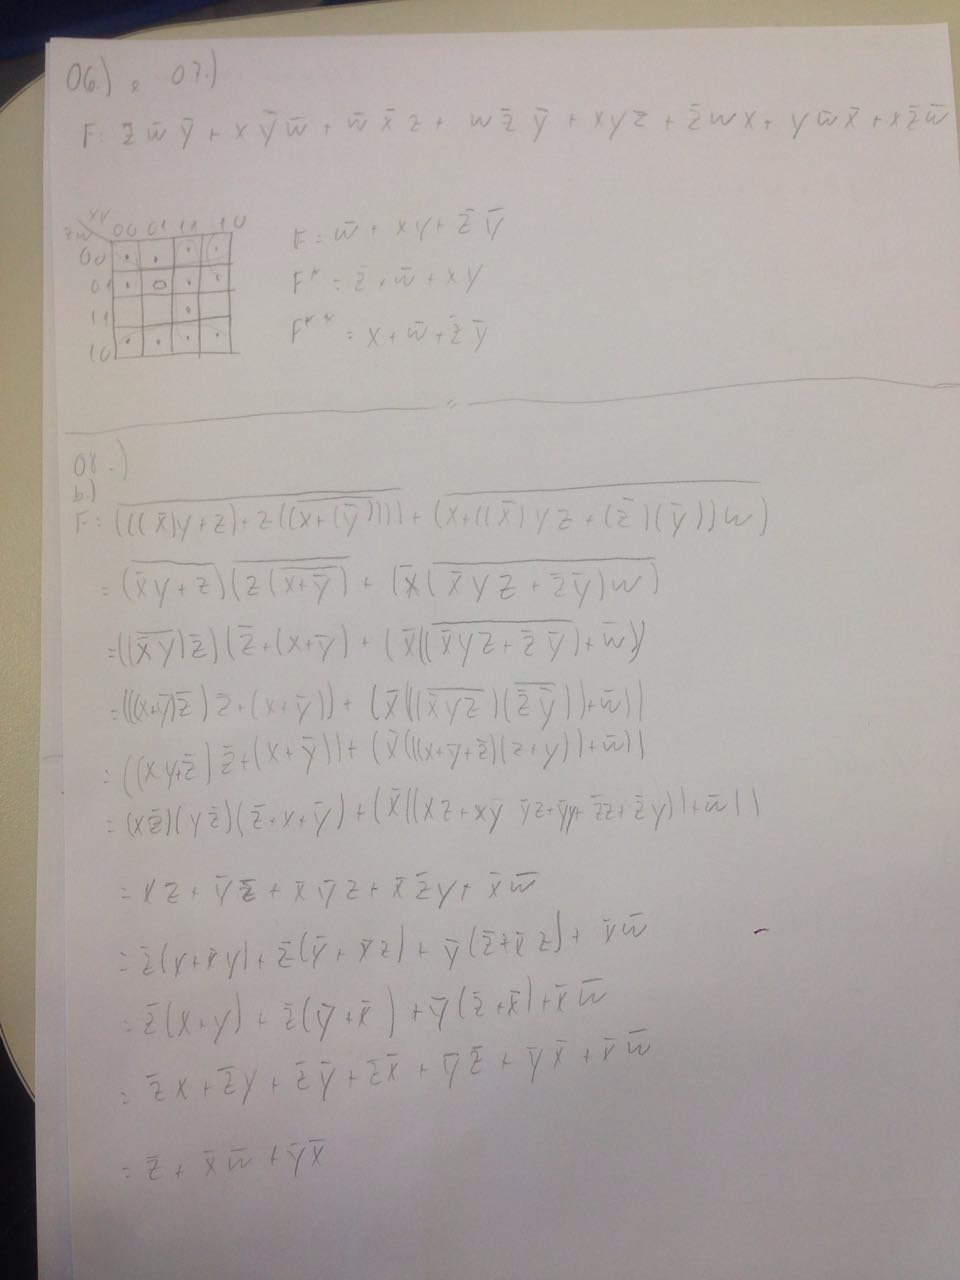 06.) e 07.)
F: z̄ w̄ ȳ + x ȳ w̄ + w̄ x̄ z + w z̄ ȳ + x y z + z̄ w x + y w̄ x̄ + x z̄ w̄
xy
zw 00 01 11 10
00 . . . .
01 . 0 . .
11 .
10 . . . .
F = w̄ + xy + z̄ ȳ
F* = z̄ + w̄ + xy
F** = x + w̄ + z̄ ȳ
08.)
b.)
F: (((x̄)y+z)+z((x+(ȳ)))) + (x+((x̄)yz+(z̄)(ȳ))w)
= (x̄y+z)(z(x+ȳ) + (x̄(x̄yz+z̄ȳ)w)
= ((x̄y)z̄)(z̄+(x+ȳ) + (x̄((x̄yz+z̄ȳ)+w̄))
= (((x+ȳ)z̄)z+(x+ȳ)) + (x̄((x̄yz)(z̄ȳ))+w̄))
= ((xy+z̄)z̄+(x+ȳ))+(x̄((x+ȳ+z̄)(z+y))+w̄))
= (xz̄)(yz̄)(z̄+x+ȳ)+(x̄((xz+xy ȳz+ȳy+z̄z+z̄y))+w̄))
= xz + ȳz̄ + x̄ȳz + x̄z̄y + x̄w̄
= z̄(x+x̄y)+z̄(ȳ+x̄z)+ȳ(z̄+x̄z)+x̄w̄
= z̄(x+y)+z̄(ȳ+x̄)+ȳ(z̄+x̄)+x̄w̄
= z̄x+z̄y+z̄ȳ+z̄x̄+ȳz̄+ȳx̄+x̄w̄
= z̄ + x̄w̄ + ȳx̄